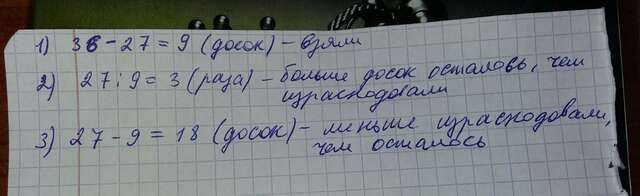 1) 36 - 27 = 9 (досок) - взяли
2) 27 : 9 = 3 (раза) - больше досок осталось, чем
израсходовали
3) 27 - 9 = 18 (досок) - меньше израсходовали,
чем осталось